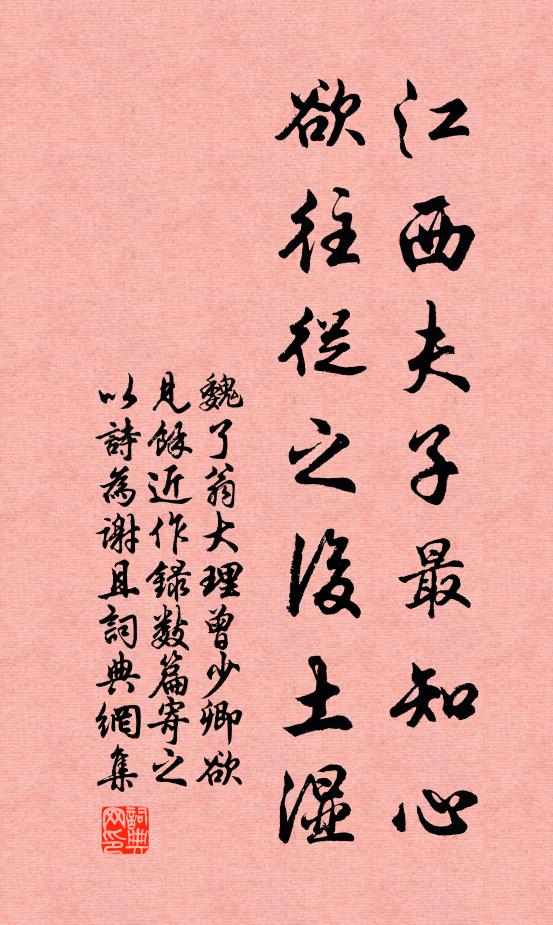 江西夫子最知心
欲往從之後土濕
魏了翁大理曾少卿欲
見餘近作錄数篇寄之
以詩為谢且詞典網集
詞典
网印